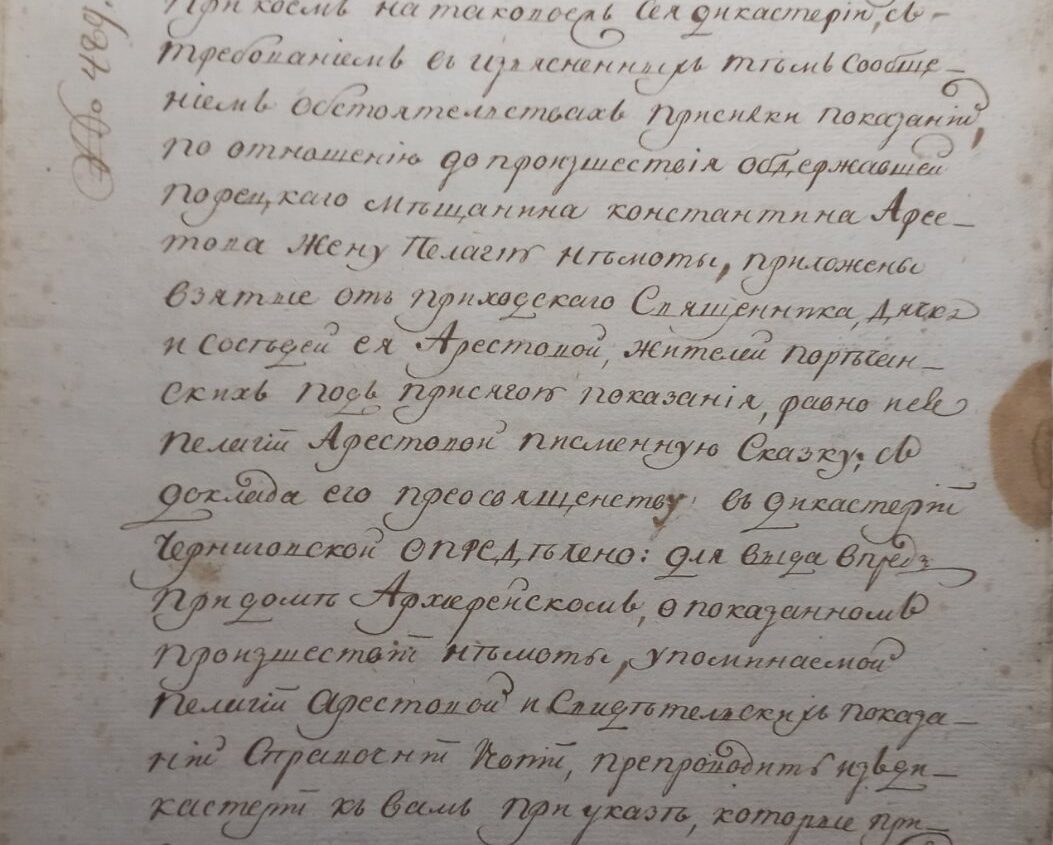 № 489.
при коемъ на таковоежъ сея дикастерiи, съ
требованiемъ въ изъясненныхъ тѣмъ сообще-
нiемъ обстоятелствахъ присилки показанiй,
по отношенiю до произшествiя обдержавшей
порецкаго мѣщанина константина Аре-
това жену Пелагiю нѣмоты, приложены
взятые отъ приходскаго Священника, дячка
и сосѣдей ея Арестовой, жителей порѣчан-
скихъ подъ присягою показанiя, равно и ее
пелагiи Арестовой писменную Сказку; съ
доклада его преосвященству въ дикастерiи
Черниговской опредѣлено: для вида впредь
при домѣ Архиерейскомъ, о показанномъ
произшествiи нѣмоты, упоминаемой
пелагiи арестовой и Свидѣтелскихъ показа-
нiй Справочнiи Копiи, препроводить изъ ди-
кастерiи къ вамъ при указѣ, которые при-